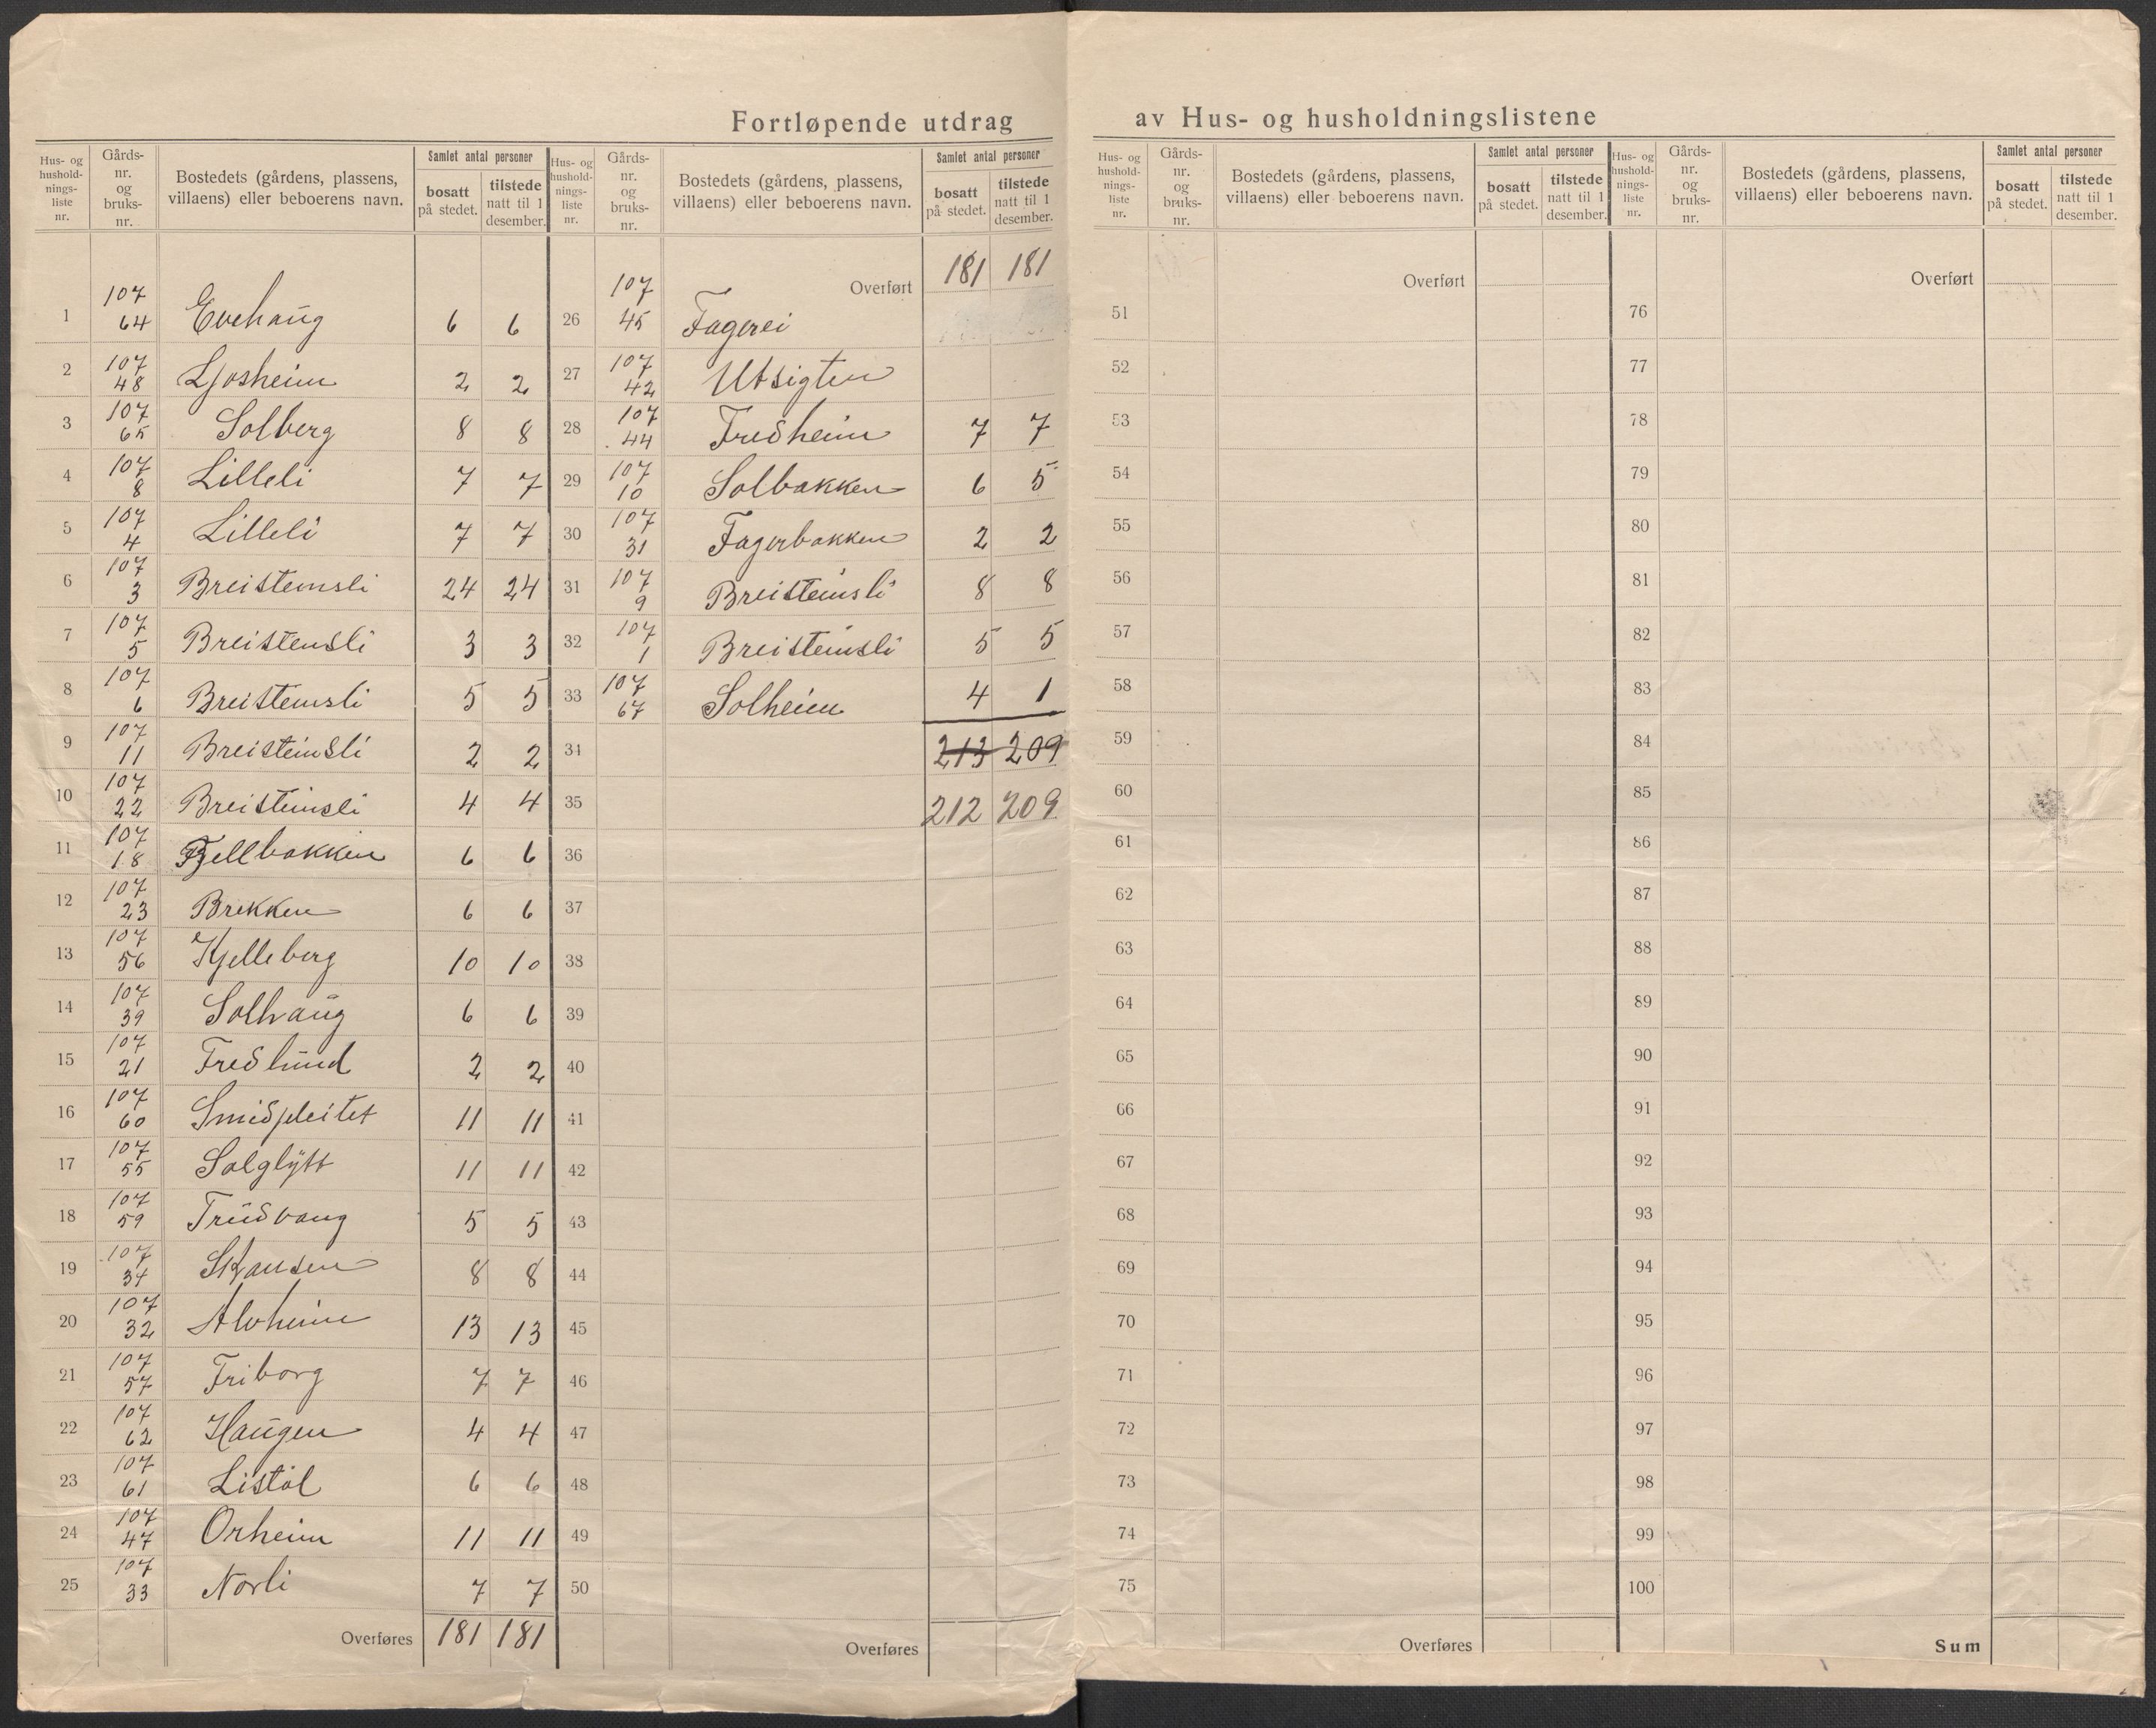 Fortløpende utdrag av Hus- og husholdningslistene
Hus- og hushold-nings-liste nr. | Gårds-nr. og bruks-nr. | Bostedets (gårdens, plassens, villaens) eller beboerens navn. | Samlet antal personer | bosatt på stedet. | tilstede natt til 1 desember.
1 107 64 Evehaug 6 6
2 107 48 Ljosheim 2 2
3 107 65 Solberg 8 8
4 107 8 Lilleli 7 7
5 107 4 Lilleli 7 7
6 107 3 Breisteinsli 24 24
7 107 5 Breistensli 3 3
8 107 6 Breisteinsli 5 5
9 107 11 Breisteinsli 2 2
10 107 22 Breisteinsli 4 4
11 107 18 Fjellbakken 6 6
12 107 23 Brekken 6 6
13 107 56 Kjelleberg 10 10
14 107 39 Solhaug 6 6
15 107 21 Fredlund 2 2
16 107 60 Smidjeleitet 11 11
17 107 55 Solglytt 11 11
18 107 59 Trudvang 5 5
19 107 34 Skansen 8 8
20 107 32 Alvheim 13 13
21 107 57 Friborg 7 7
22 107 62 Haugen 4 4
23 107 61 Listøl 6 6
24 107 47 Orheim 11 11
25 107 33 Norli 7 7
Overføres 181 181
Hus- og hushold-nings-liste nr. | Gårds-nr. og bruks-nr. | Bostedets (gårdens, plassens, villaens) eller beboerens navn. | Samlet antal personer | bosatt på stedet. | tilstede natt til 1 desember.
Overført 181 181
26 107 45 Fagerei
27 107 42 Utsigten
28 107 44 Fredheim 7 7
29 107 10 Solbakken 6 5
30 107 31 Fagerbakken 2 2
31 107 9 Breisteinsli 8 8
32 107 1 Breisteinsli 5 5
33 107 67 Solheim 4 1
34 213 209
35 212 209
36
37
38
39
40
41
42
43
44
45
46
47
48
49
50
Overføres
Hus- og hushold-nings-liste nr. | Gårds-nr. og bruks-nr. | Bostedets (gårdens, plassens, villaens) eller beboerens navn. | Samlet antal personer | bosatt på stedet. | tilstede natt til 1 desember.
Overført
51
52
53
54
55
56
57
58
59
60
61
62
63
64
65
66
67
68
69
70
71
72
73
74
75
Overføres
Hus- og hushold-nings-liste nr. | Gårds-nr. og bruks-nr. | Bostedets (gårdens, plassens, villaens) eller beboerens navn. | Samlet antal personer | bosatt på stedet. | tilstede natt til 1 desember.
Overført
76
77
78
79
80
81
82
83
84
85
86
87
88
89
90
91
92
93
94
95
96
97
98
99
100
Sum